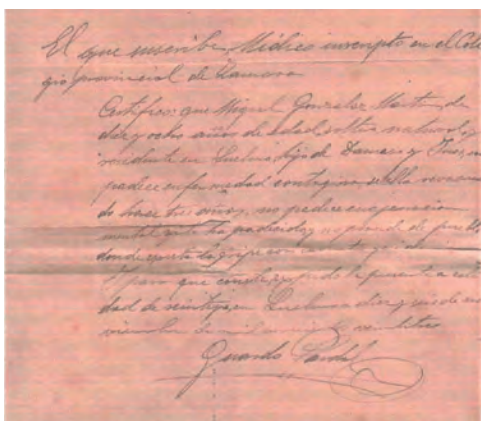 El que suscribe, Médico inscripto en el Cole
gio provincial de Zamora
Certifico: que Miguel Gonzalez Martin, de
diez y ocho años de edad, soltero, natural y
residente en hijo de Damaso y
padece enfermedad contagiosa, se halla revacuna
do hace tres años, no padece enagenacion
mental ni la ha padecido, y no procede de pueblo
donde exista la gripe con caracter
Y para que conste, expido la presente a
dad de en diez y seis de no
viembre de mil novecientos veintitres